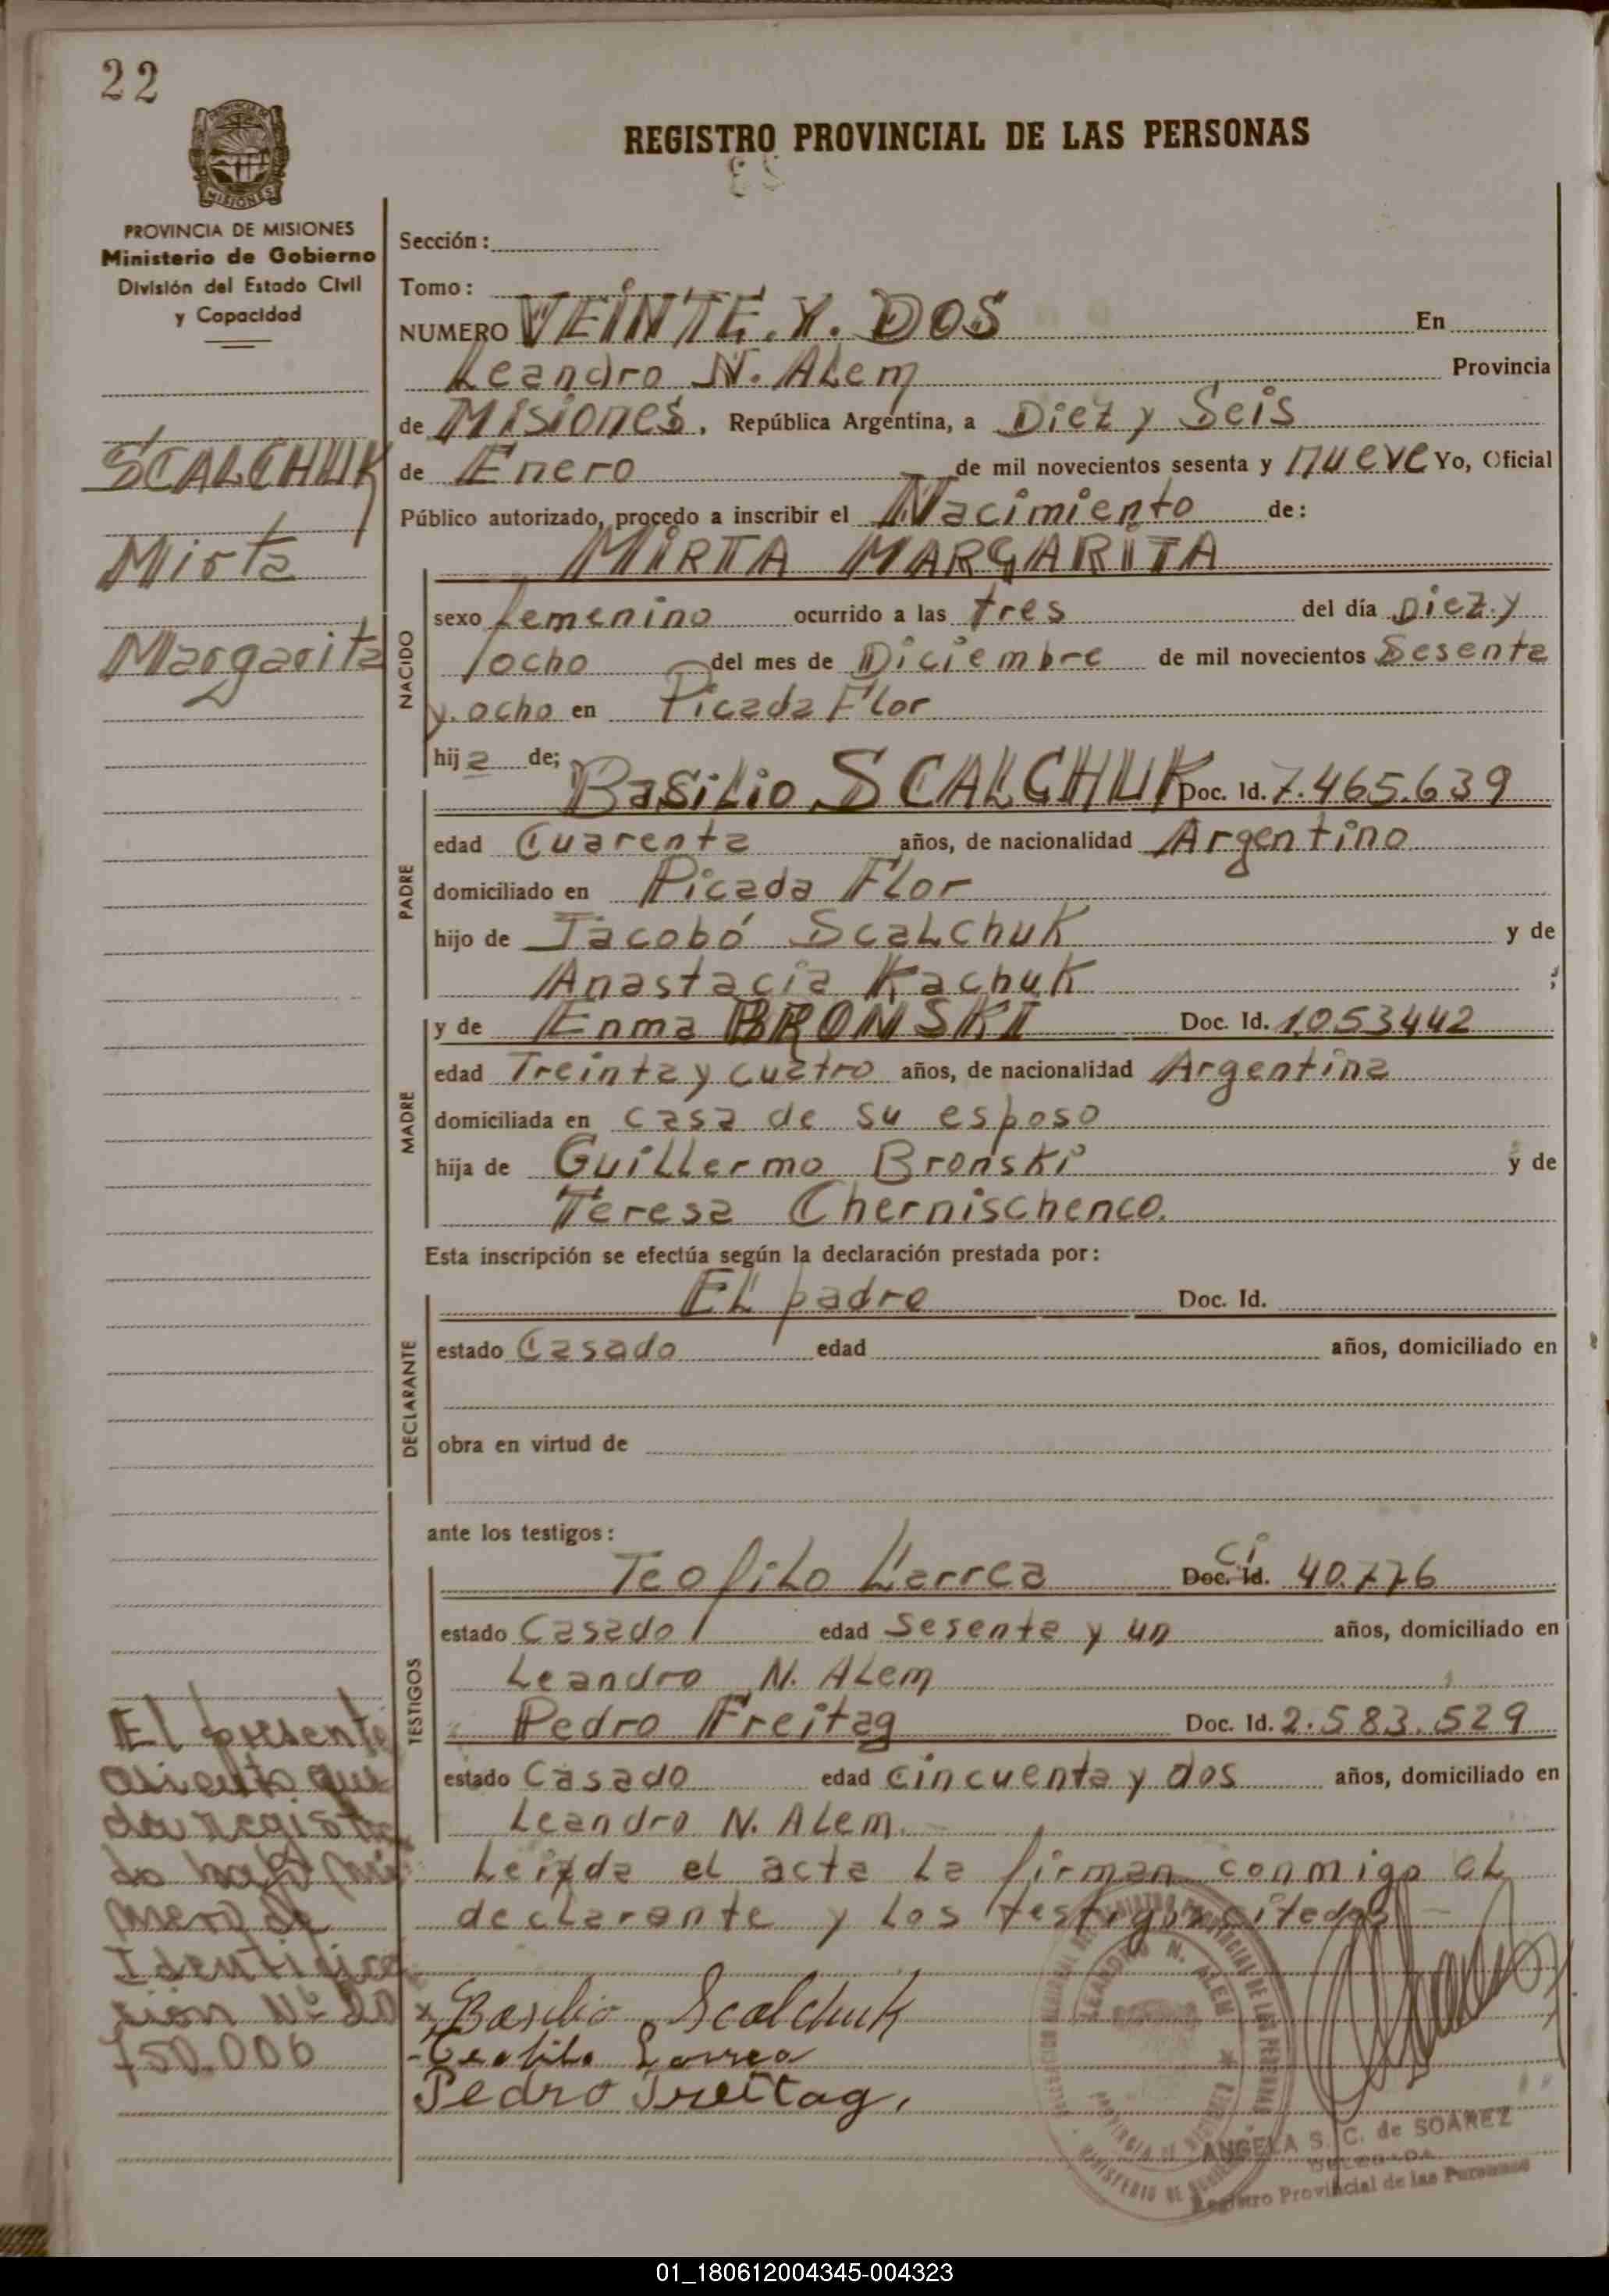 22
REGISTRO PROVINCIAL DE LAS PERSONAS
PROVINCIA DE MISIONES
Ministerio de Gobierno
División del Estado Civil
y Capacidad
SCALCHUK
Mirta
Margarita
Sección:
Tomo:
NUMERO VEINTE.Y.DOS En
Leandro N. ALem Provincia
de Misiones, República Argentina, a Diez y Seis
de Enero de mil novecientos sesenta y nueve Yo, Oficial
Público autorizado, procedo a inscribir el Nacimiento de:
MIRTA MARGARITA
NACIDO
sexo femenino ocurrido a las tres del día Diez y
ocho del mes de Diciembre de mil novecientos Sesenta
y. ocho en Picada Flor
hija de;
PADRE
Basilio SCALCHUK Doc. Id. 7.465.639
edad Cuarenta años, de nacionalidad Argentino
domiciliado en Picada Flor
hijo de Jacobó Scalchuk y de
Anastacia Kachuk ;
MADRE
y de Enma BRONSKI Doc. Id. 1.053442
edad Treinta y cuatro años, de nacionalidad Argentina
domiciliada en casa de su esposo
hija de Guillermo Bronski y de
Teresa Chernischenco.
Esta inscripción se efectúa según la declaración prestada por:
DECLARANTE
EL padre Doc. Id.
estado Casado edad años, domiciliado en
obra en virtud de
ante los testigos:
TESTIGOS
Teofilo Larrea Doc. Id. CI 40.776
estado Casado edad Sesenta y un años, domiciliado en
Leandro N. ALem
Pedro Freitag Doc. Id. 2.583.529
estado Casado edad cincuenta y dos años, domiciliado en
Leandro N. ALem.
Leida el acta la firman conmigo el
declarante y los testigos citedos
Basilio Scalchuk
Teofilo Larrea
Pedro Freitag.
El presente
asiento que
da registra
do bajo nú
mero de
Identifica
ción Nº 20
750.006
LEANDRO N. ALEM
ANGELA S. C. de SOAREZ
DELEGADA
Registro Provincial de las Personas
01_180612004345-004323